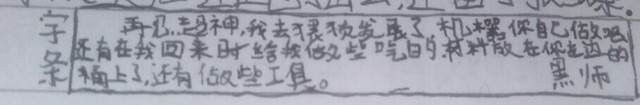 字条
再见,超神,我去猥琐发展了,机器你自己做吧
还有在我回来时给我做些吃的,材料放在你左边的
箱上了,还有做些工具。 黑师